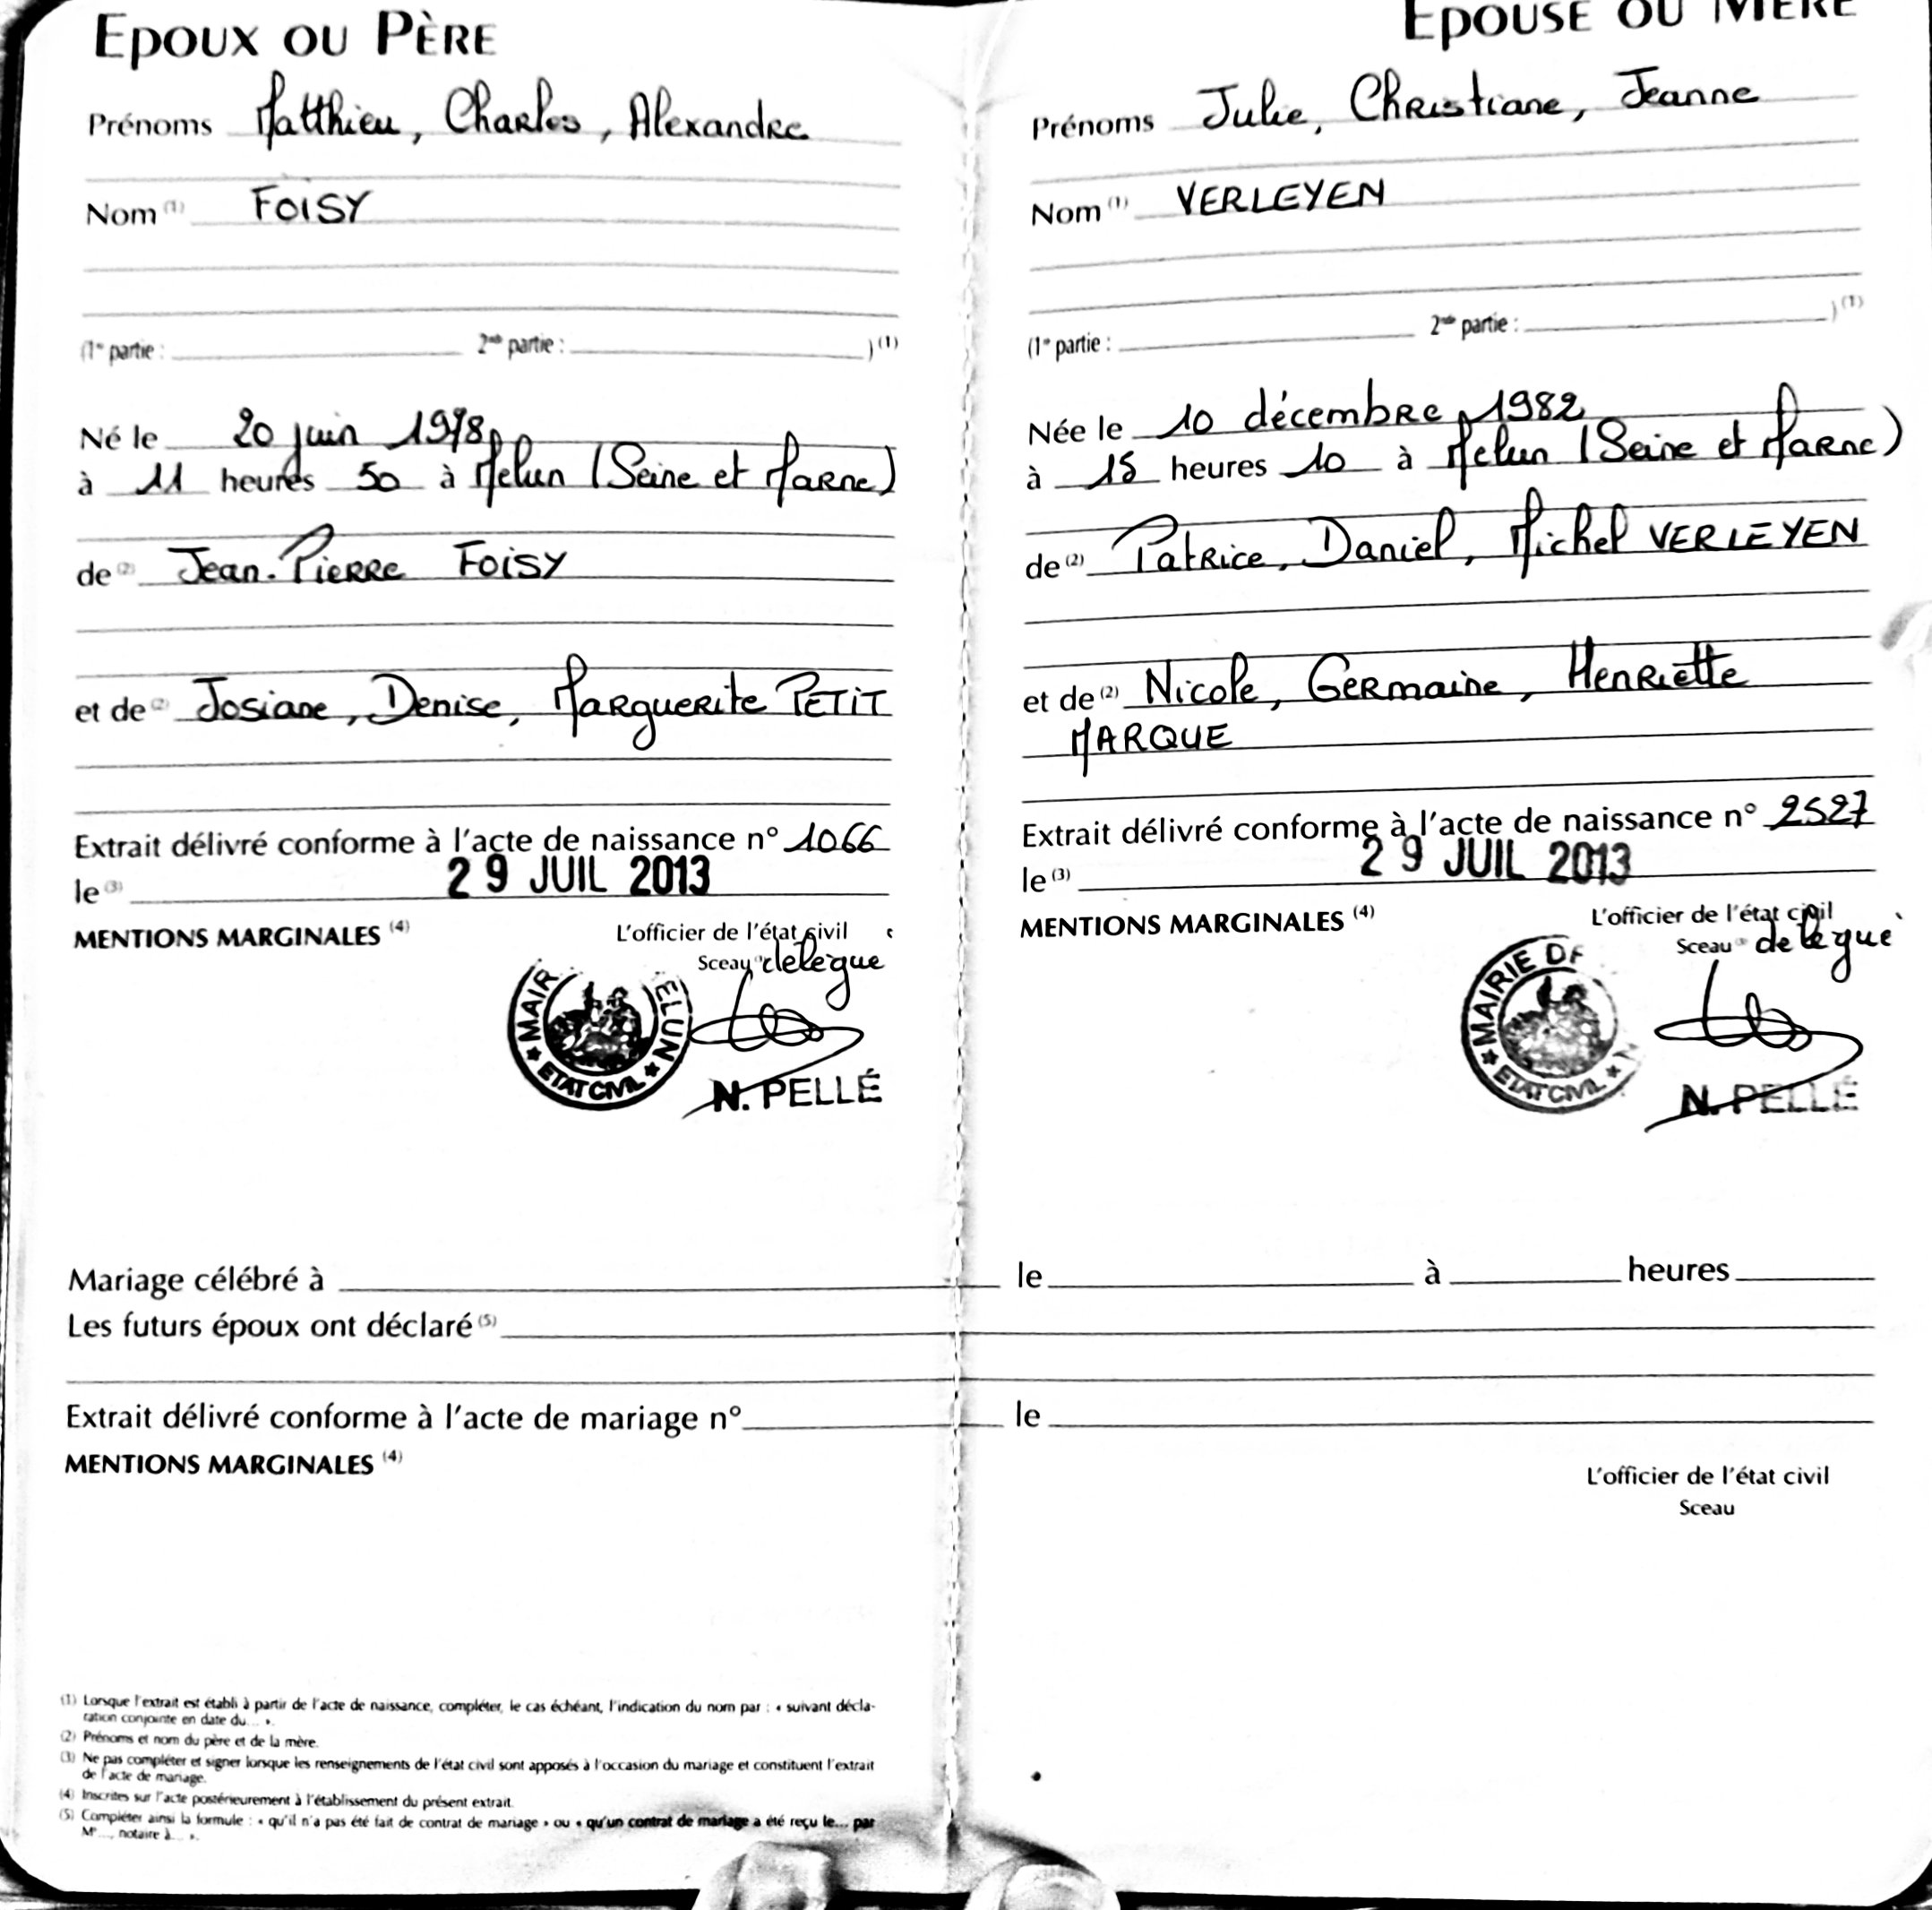 EPOUX OU PÈRE
Prénoms Matthieu, Charles, Alexandre
Nom (1) FOISY
(1re partie : 2nde partie : ) (1)
Né le 20 juin 1978
à 11 heures 50 à Melun (Seine et Marne)
de (2) Jean-Pierre FOISY
et de (2) Josiane, Denise, Marguerite PETIT
Extrait délivré conforme à l'acte de naissance n° 1066
le (3) 29 JUIL 2013
MENTIONS MARGINALES (4)
L'officier de l'état civil
Sceau délégué
MAIR ELUN
★ ETAT CIVIL ★
N. PELLÉ
EPOUSE OU MÈRE
Prénoms Julie, Christiane, Jeanne
Nom (1) VERLEYEN
(1re partie : 2nde partie : ) (1)
Née le 10 décembre 1982
à 15 heures 10 à Melun (Seine et Marne)
de (2) Patrice, Daniel, Michel VERLEYEN
et de (2) Nicole, Germaine, Henriette
MARQUE
Extrait délivré conforme à l'acte de naissance n° 2527
le (3) 29 JUIL 2013
MENTIONS MARGINALES (4)
L'officier de l'état civil
Sceau délégué
MAIRIE DE
★ ETAT CIVIL ★
N. PELLÉ
Mariage célébré à le à heures
Les futurs époux ont déclaré (5)
Extrait délivré conforme à l'acte de mariage n° le
MENTIONS MARGINALES (4)
L'officier de l'état civil
Sceau
(1) Lorsque l'extrait est établi à partir de l'acte de naissance, compléter, le cas échéant, l'indication du nom par : « suivant décla-
ration conjointe en date du... ».
(2) Prénoms et nom du père et de la mère.
(3) Ne pas compléter et signer lorsque les renseignements de l'état civil sont apposés à l'occasion du mariage et constituent l'extrait
de l'acte de mariage.
(4) Inscrites sur l'acte postérieurement à l'établissement du présent extrait.
(5) Compléter ainsi la formule : « qu'il n'a pas été fait de contrat de mariage » ou « qu'un contrat de mariage a été reçu le... par
Me..., notaire à... ».